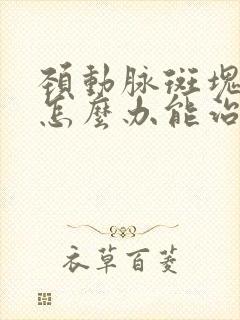 頚動脉斑塊
怎麼办能治
衣草百菱